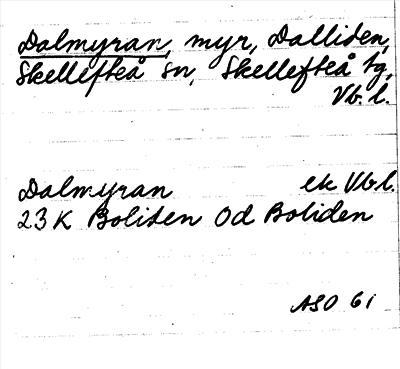 Dalmyran, myr, Dalliden,
Skellefteå sn, Skellefteå tg,
Vb. l.
Dalmyran ek Vb l.
23 K Boliden Od Boliden
ASO 61